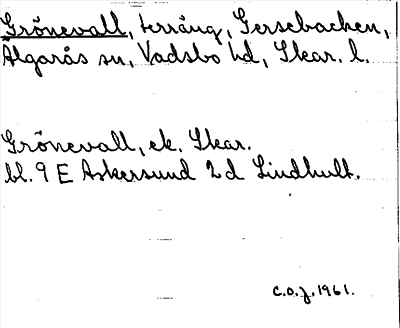 Grönevall, terräng, Gersebacken,
Älgarås sn, Vadsbo hd, Skar. l.
Grönevall, ek. Skar.
bl. 9 E Askersund 2d Lindhult.
C.O.J. 1961.